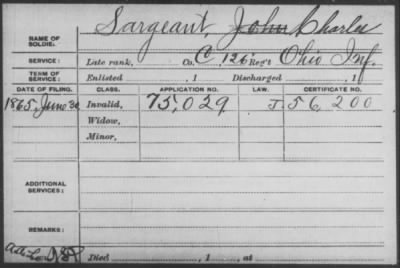 NAME OF SOLDIER: Sargeant, John Charles
SERVICE: Late rank, Co. C, 126" Reg't Ohio Inf.
TERM OF SERVICE: Enlisted , 1 Discharged , 1
DATE OF FILING. CLASS. APPLICATION NO. LAW. CERTIFICATE NO.
1865, June 30 Invalid, 75,029 J. 56,200
Widow,
Minor,
ADDITIONAL SERVICES:
REMARKS:
Died , 1 , at